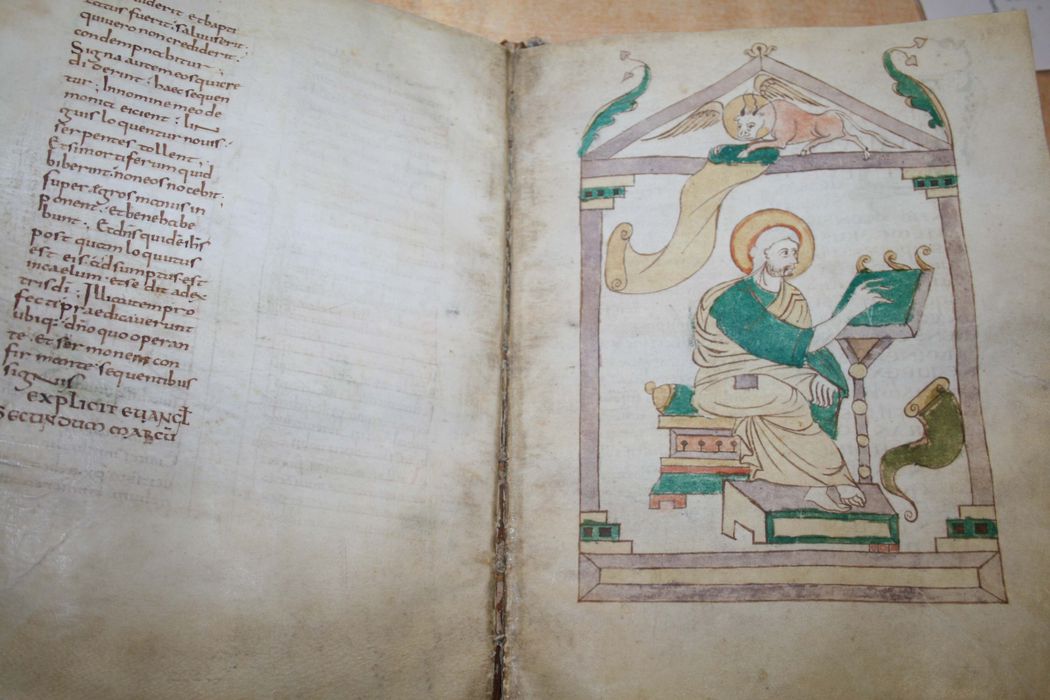 derit et bapti
zatus fuerit : saluus erit :
qui uero non crediderit .
condempnabitur :
Signa autem eos qui cre
diderint : haec sequen
tur : In nomine meo de
monia eicient : lin
guis loquentur nouis :
serpentes tollent :
Et si mortiferum quid
biberint : non eos nocebit :
super egros manus in
ponent : et bene habe
bunt : Et dn̄s quidē ih̄s
post quam locutus
est eis adsumptus est
in caelum . et sedit a dex
tris dī : Illi autem pro
fecti praedicauerunt
ubiq: dn̄o quo operan
te . et sermonem con
firmante sequentibus
signis
EXPLICIT EUANGL̄
SECUNDUM MARCŪ